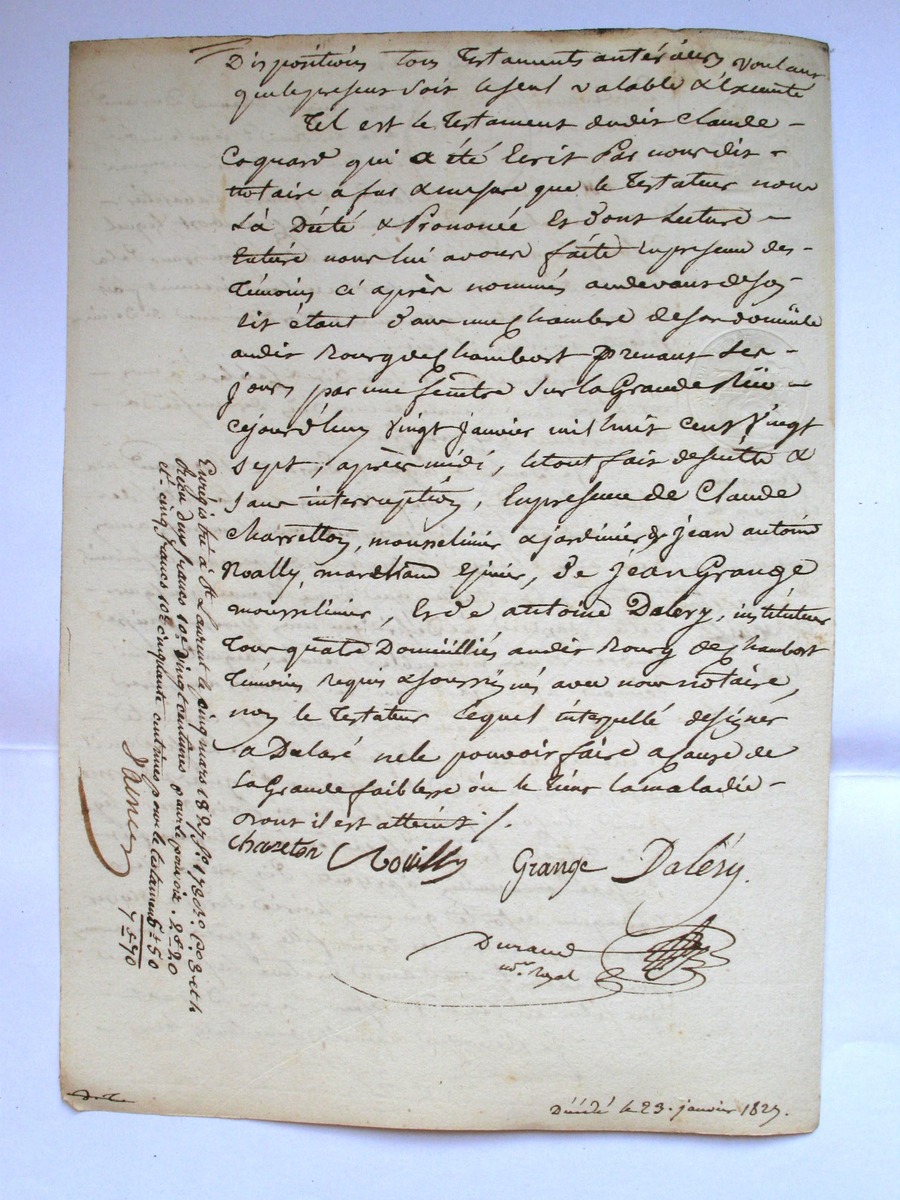 Dispositions tous Testaments antérieurs voulant
que le présent soit le seul valable & Exécuté
Tel est le Testament dudit Claude
Coquard qui a été Ecrit Par nousdit
notaire a fur & mesure que le Testateur nous
La Dicté & Prononcé Et dont Lecture
Entière nous lui avons faite En présence des
Témoins ci après nommés au devant de son
lit étant dans une Chambre de son domicile
audit Bourg de Chambost prenant Ses
jours par une fenêtre Sur la Grande Rüe
Cejourd'hui Vingt Janvier mil huit cent Vingt
Sept, après midi, le tout fait de suitte &
Sans interruption, En présence de Claude
Charretton, mousselinier & jardinier, de jean antoine
Noailly, marchand Epicier, de jean Grange
mousselinier, Et de antoine Daléry, instituteur
Tous quatre Domicilliés audit Bourg de Chambost
Témoins Requis & soussignés avec nous notaire,
non le Testateur Lequel interpellé de signer
a Délaré ne le pouvoir faire a Cause de
La Grande faiblesse où le Tient la maladie
dont il est atteint /.
Chareton Noailly Grange Daléry
Durand
n.re Royal
Enrégistré à St Laurent le cinq mars 1827 f.o 178 R.o C.es 3 et 4
Reçu deux francs 10.e vingt centimes pour le pouvoir. 2 f 20
et cinq francs 10.e cinquante centimes pour le testament 5 f 50
7 f 70
Décédé le 23 janvier 1827.